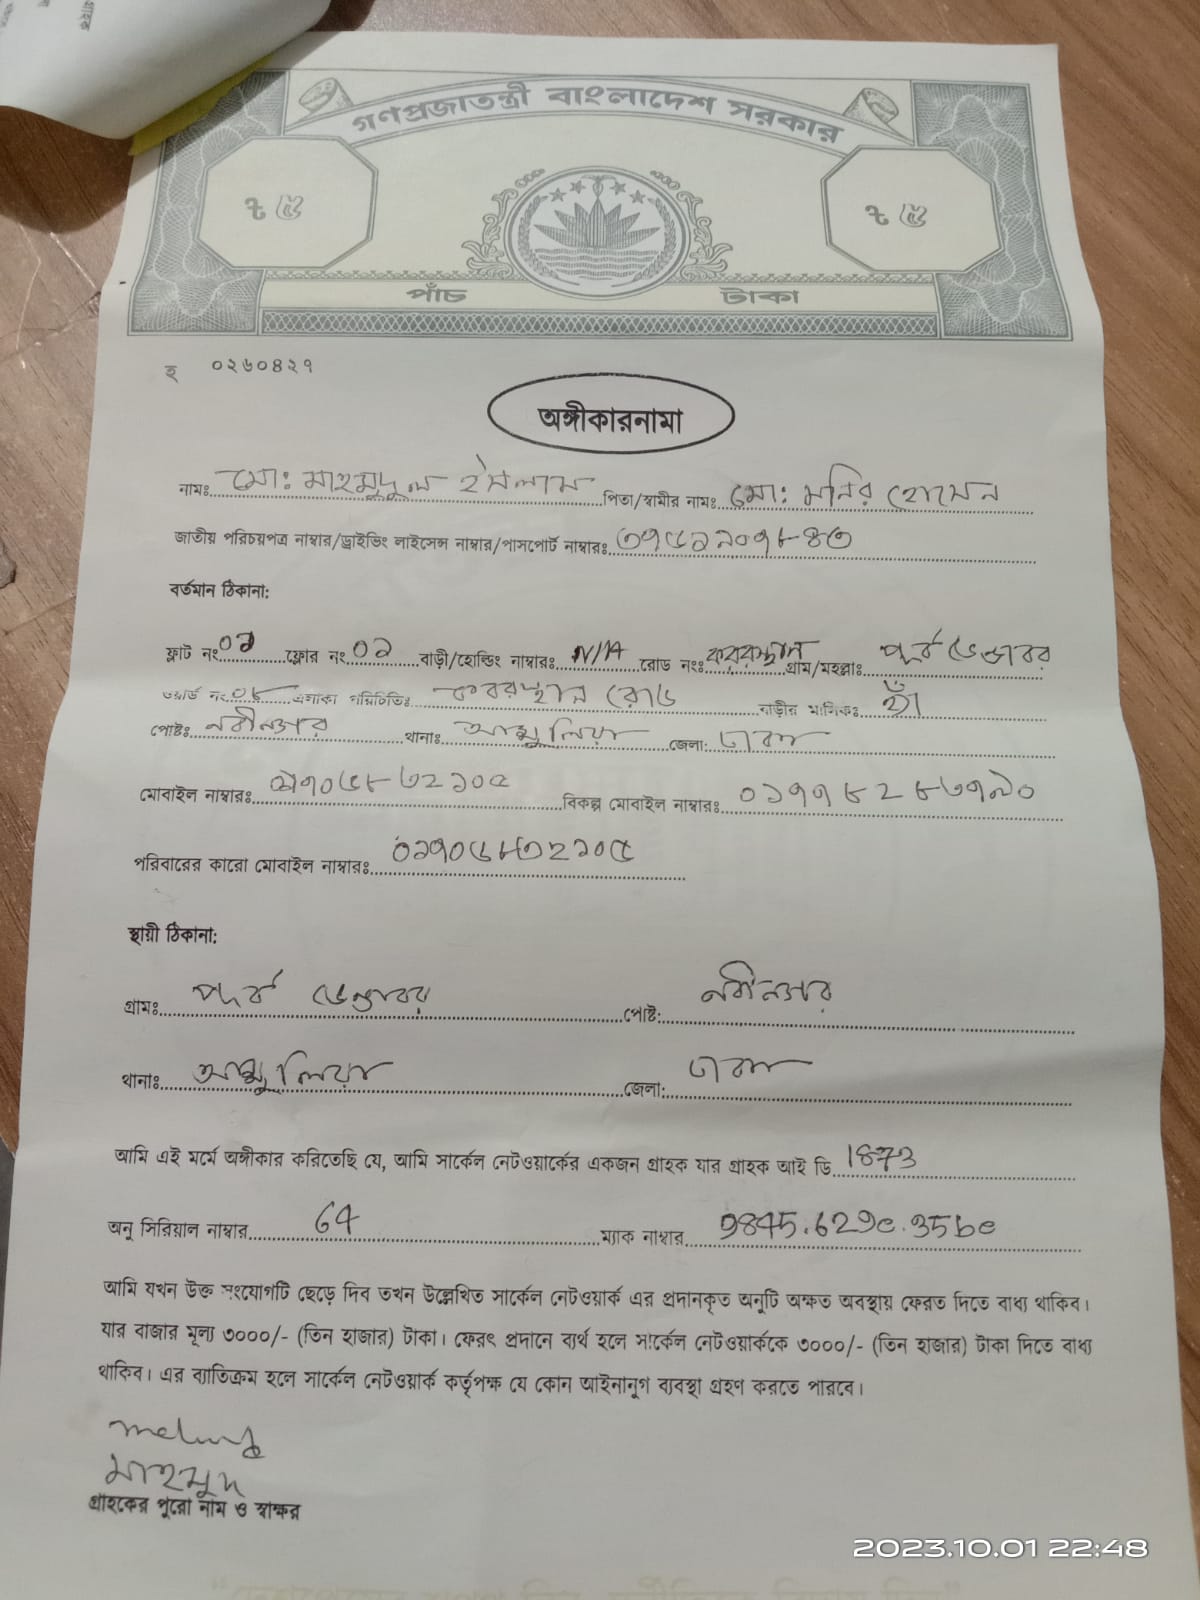 গণপ্রজাতন্ত্রী বাংলাদেশ সরকার
ট ৫ ট ৫
পাঁচ টাকা
হ ০২৬০৪২৭
অঙ্গীকারনামা
নামঃ মোঃ মাহমুদুল ইসলাম পিতা/স্বামীর নামঃ মোঃ মনির হোসেন
জাতীয় পরিচয়পত্র নাম্বার/ড্রাইভিং লাইসেন্স নাম্বার/পাসপোর্ট নাম্বারঃ ৩৭৫১৯০৭৮৪৩
বর্তমান ঠিকানা:
ফ্লাট নং ০১ ফ্লোর নং ০১ বাড়ী/হোল্ডিং নাম্বারঃ N/A রোড নংঃ কবরস্থান গ্রাম/মহল্লাঃ পূর্ব ডেন্ডাবর
ওয়ার্ড নং ০৮ এলাকা পরিচিতিঃ কবরস্থান রোড বাড়ীর মালিকঃ হ্যাঁ
পোষ্টঃ নবীনগর থানাঃ আশুলিয়া জেলা: ঢাকা
মোবাইল নাম্বারঃ ০১৭০৫৮৩২১০৫ বিকল্প মোবাইল নাম্বারঃ ০১৭৭৮২৮৩৭৯০
পরিবারের কারো মোবাইল নাম্বারঃ ০১৭০৫৮৩২১০৫
স্থায়ী ঠিকানা:
গ্রামঃ পূর্ব ডেন্ডাবর পোষ্ট: নবীনগর
থানাঃ আশুলিয়া জেলা: ঢাকা
আমি এই মর্মে অঙ্গীকার করিতেছি যে, আমি সার্কেল নেটওয়ার্কের একজন গ্রাহক যার গ্রাহক আই ডি 1873
অনু সিরিয়াল নাম্বার 64 ম্যাক নাম্বার 9845.629e.35be
আমি যখন উক্ত সংযোগটি ছেড়ে দিব তখন উল্লেখিত সার্কেল নেটওয়ার্ক এর প্রদানকৃত অনুটি অক্ষত অবস্থায় ফেরত দিতে বাধ্য থাকিব।
যার বাজার মূল্য ৩০০০/- (তিন হাজার) টাকা। ফেরৎ প্রদানে ব্যর্থ হলে সার্কেল নেটওয়ার্ককে ৩০০০/- (তিন হাজার) টাকা দিতে বাধ্য
থাকিব। এর ব্যাতিক্রম হলে সার্কেল নেটওয়ার্ক কর্তৃপক্ষ যে কোন আইনানুগ ব্যবস্থা গ্রহণ করতে পারবে।
মাহমুদ
গ্রাহকের পুরো নাম ও স্বাক্ষর
2023.10.01 22:48